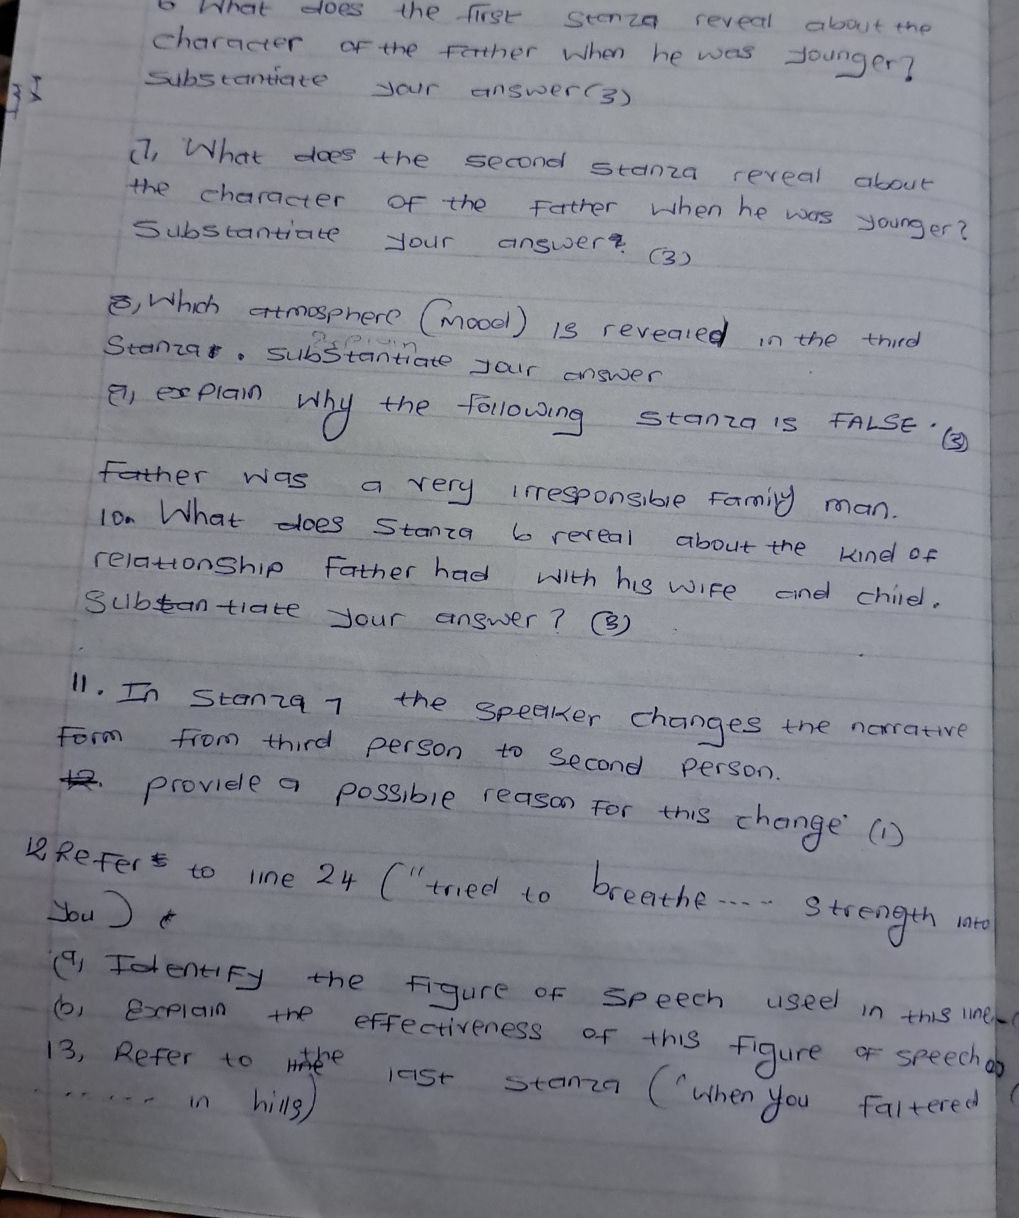 6 What does the first stanza reveal about the
character of the father when he was younger?
substantiate your answer (3)
(7, What does the second stanza reveal about
the character of the Father when he was younger?
Substantiate your answer? (3)
8, Which atmosphere (mood) is revealed in the third
Stanza. substantiate your answer
9, explain why the following stanza is FALSE. (3)
Father was a very irresponsible Family man.
10. What does Stanza 6 reveal about the kind of
relationship Father had with his wife and child.
Substantiate your answer? (3)
11. In Stanza 7 the speaker changes the narrative
Form from third person to second person.
provide a possible reason for this change (1)
12 Refer to line 24 ("tried to breathe.... strength into
you)
(a, Identify the figure of speech used in this line
(b, Explain the effectiveness of this figure of speech
13, Refer to the last stanza ("when you faltered
....... in hills)